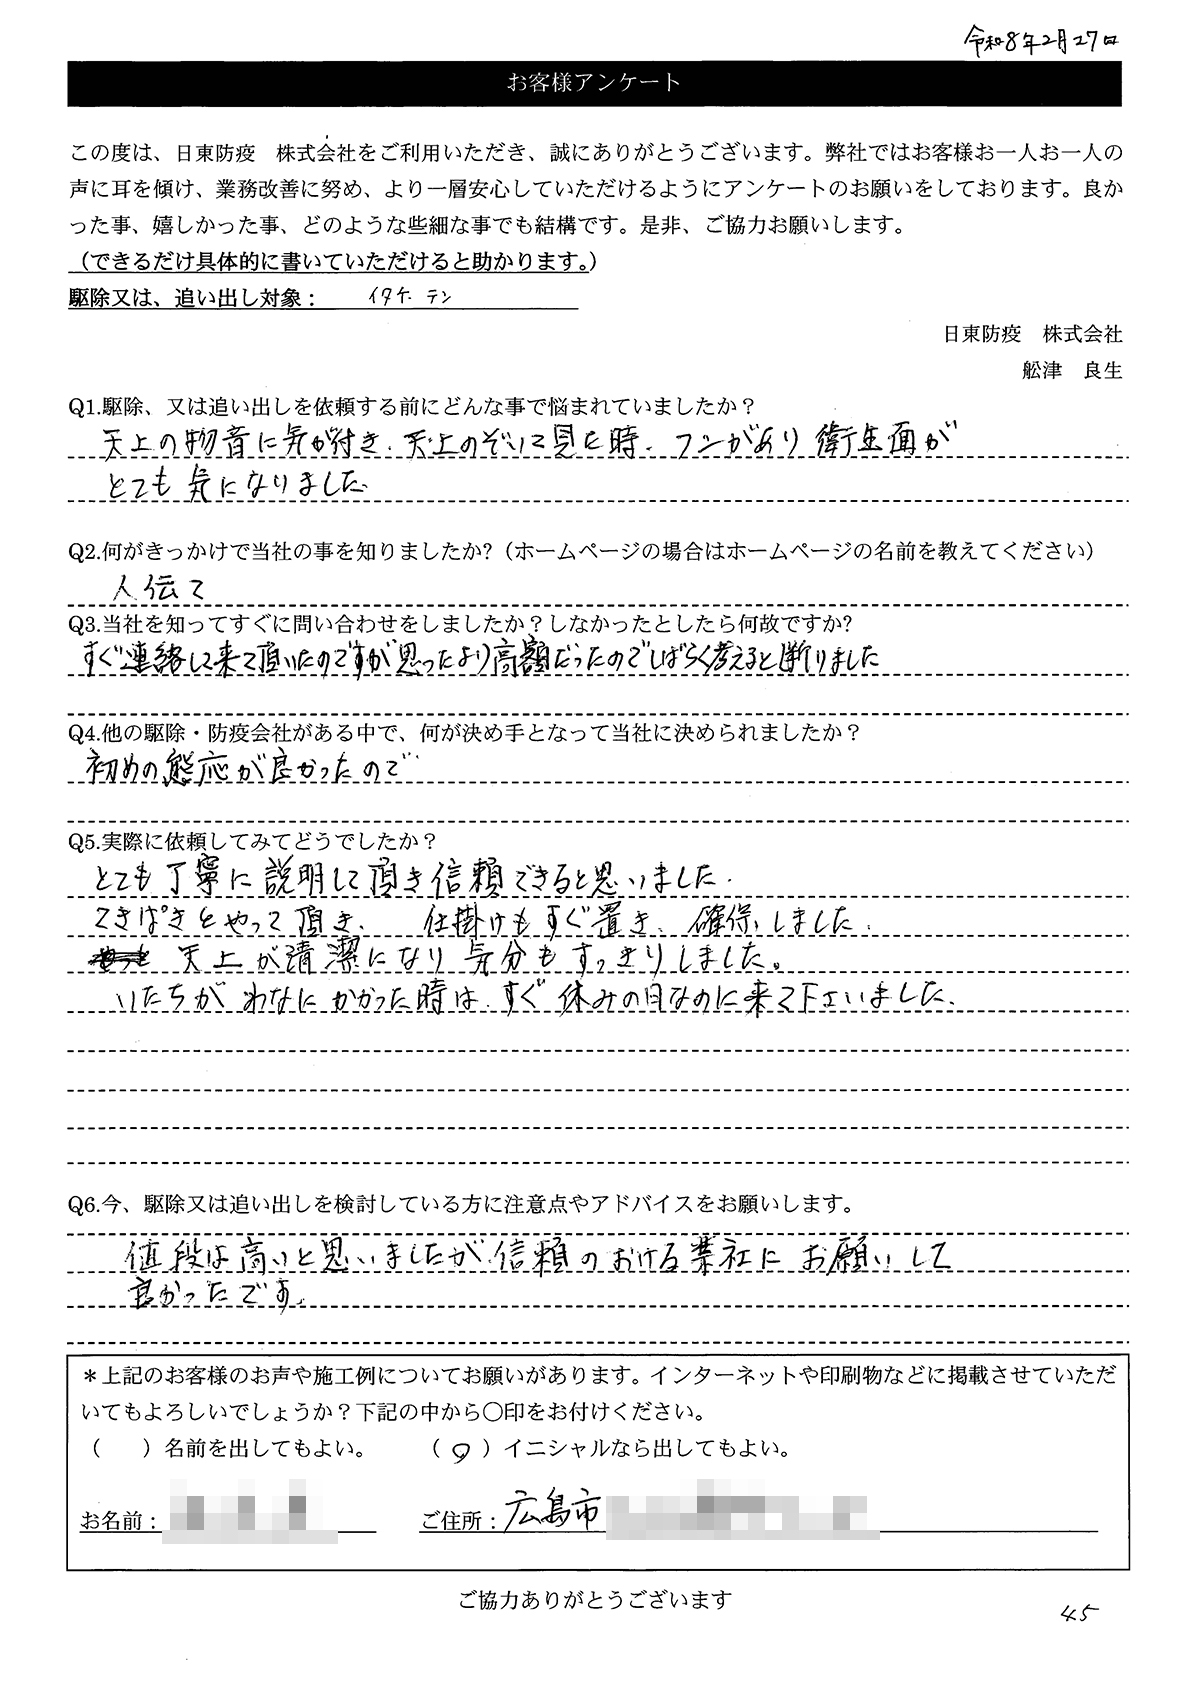 令和8年2月27日
お客様アンケート
この度は、日東防疫　株式会社をご利用いただき、誠にありがとうございます。弊社ではお客様お一人お一人の
声に耳を傾け、業務改善に努め、より一層安心していただけるようにアンケートのお願いをしております。良か
った事、嬉しかった事、どのような些細な事でも結構です。是非、ご協力お願いします。
（できるだけ具体的に書いていただけると助かります。）
駆除又は、追い出し対象： イタケ テン
日東防疫　株式会社
舩津　良生
Q1.駆除、又は追い出しを依頼する前にどんな事で悩まれていましたか？
天上の物音に気が付き、天上のぞいて見た時、フンがあり衛生面が
とても気になりました
Q2.何がきっかけで当社の事を知りましたか?（ホームページの場合はホームページの名前を教えてください）
人伝て
Q3.当社を知ってすぐに問い合わせをしましたか？しなかったとしたら何故ですか?
すぐ連絡して来て頂いたのですが思ったより高額だったのでしばらく考えると断りました
Q4.他の駆除・防疫会社がある中で、何が決め手となって当社に決められましたか？
初めの態応が良かったので
Q5.実際に依頼してみてどうでしたか？
とても丁寧に説明して頂き信頼できると思いました.
てきぱきとやって頂き、 仕掛けもすぐ置き、確保しました.
天上が清潔になり気分もすっきりしました。
いたちがわなにかかった時は、すぐ休みの日なのに来て下さいました.
Q6.今、駆除又は追い出しを検討している方に注意点やアドバイスをお願いします。
値段は高いと思いましたが、信頼のおける業社にお願いして
良かったです.
＊上記のお客様のお声や施工例についてお願いがあります。インターネットや印刷物などに掲載させていただ
いてもよろしいでしょうか？下記の中から〇印をお付けください。
（　　）名前を出してもよい。　　（ ○ ）イニシャルなら出してもよい。
お名前：　　ご住所：広島市
ご協力ありがとうございます
45